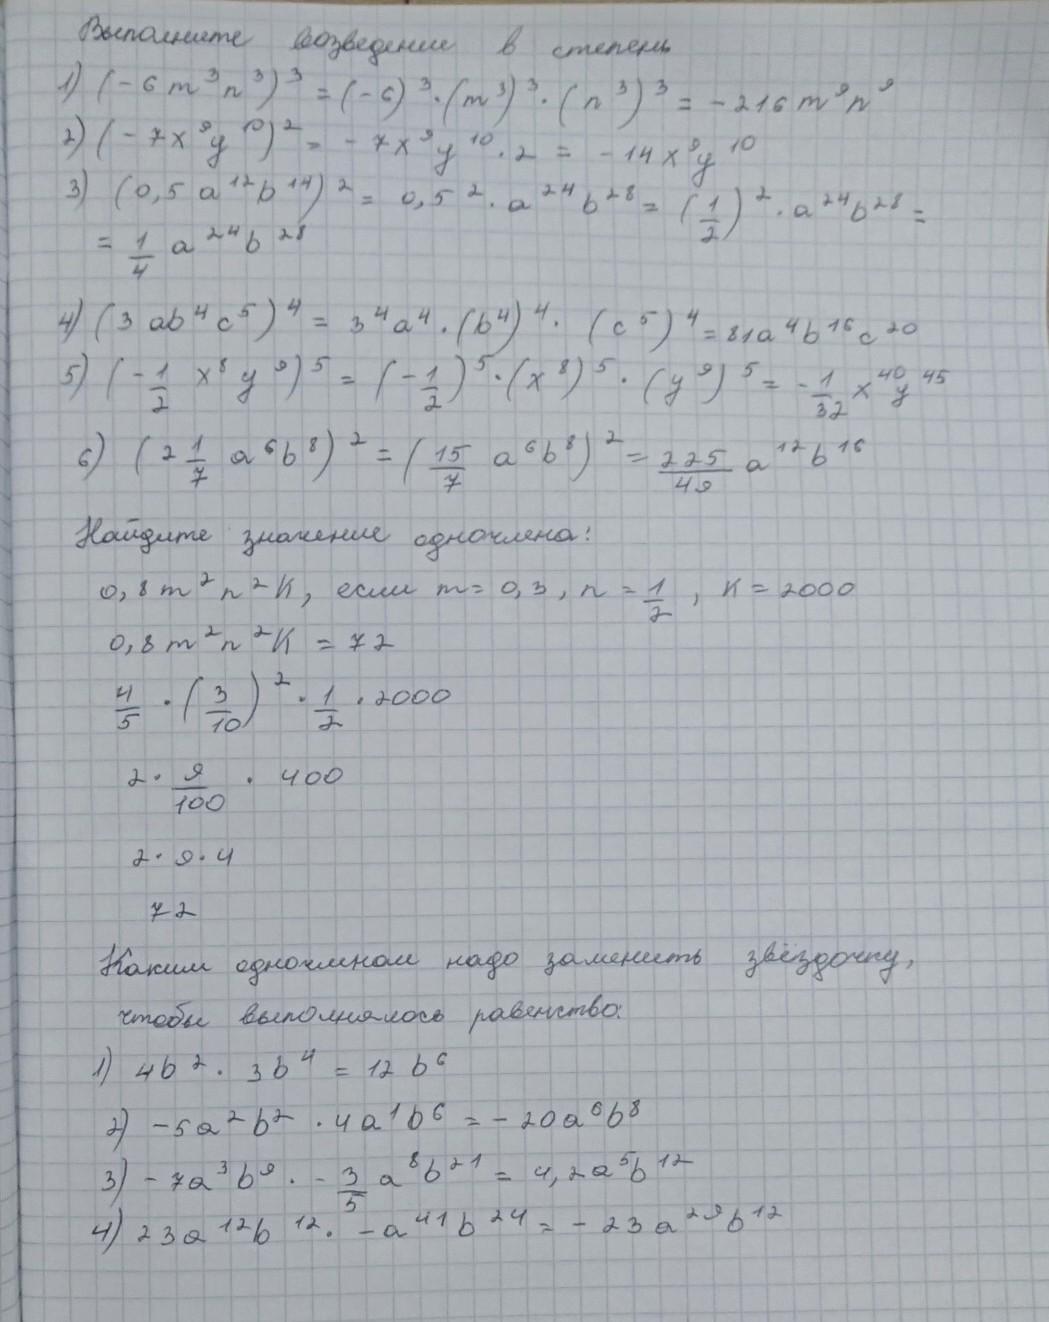 Выполните возведение в степень
1) (-6m³n³)³ = (-6)³·(m³)³·(n³)³ = -216m⁹n⁹
2) (-7x⁹y¹⁰)² = -7x⁹y¹⁰·2 = -14x⁹y¹⁰
3) (0,5a¹²b¹⁴)² = 0,5²·a²⁴b²⁸ = (1/2)²·a²⁴b²⁸ =
= 1/4 a²⁴b²⁸
4) (3ab⁴c⁵)⁴ = 3⁴a⁴·(b⁴)⁴·(c⁵)⁴ = 81a⁴b¹⁶c²⁰
5) (-1/2 x⁸y⁹)⁵ = (-1/2)⁵·(x⁸)⁵·(y⁹)⁵ = -1/32 x⁴⁰y⁴⁵
6) (2 1/7 a⁶b⁸)² = (15/7 a⁶b⁸)² = 225/49 a¹²b¹⁶
Найдите значение одночлена:
0,8m²n²K, если m = 0,3, n = 1/2, K = 2000
0,8m²n²K = 72
4/5 · (3/10)² · 1/2 · 2000
2 · 9/100 · 400
2·9·4
72
Каким одночленом надо заменить звёздочку,
чтобы выполнялось равенство:
1) 4b²· 3b⁴ = 12b⁶
2) -5a²b² ·4a¹b⁶ = -20a⁶b⁸
3) -7a³b⁹ · -3/5 a⁸b²¹ = 4,2a⁵b¹²
4) 23a¹²b¹²· -a⁴¹b²⁴ = -23a²⁹b¹²